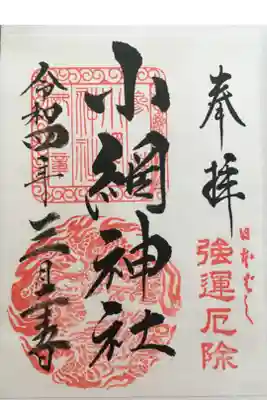 奉拝
日本ばし
強運厄除
小網神社
令和四年
三月